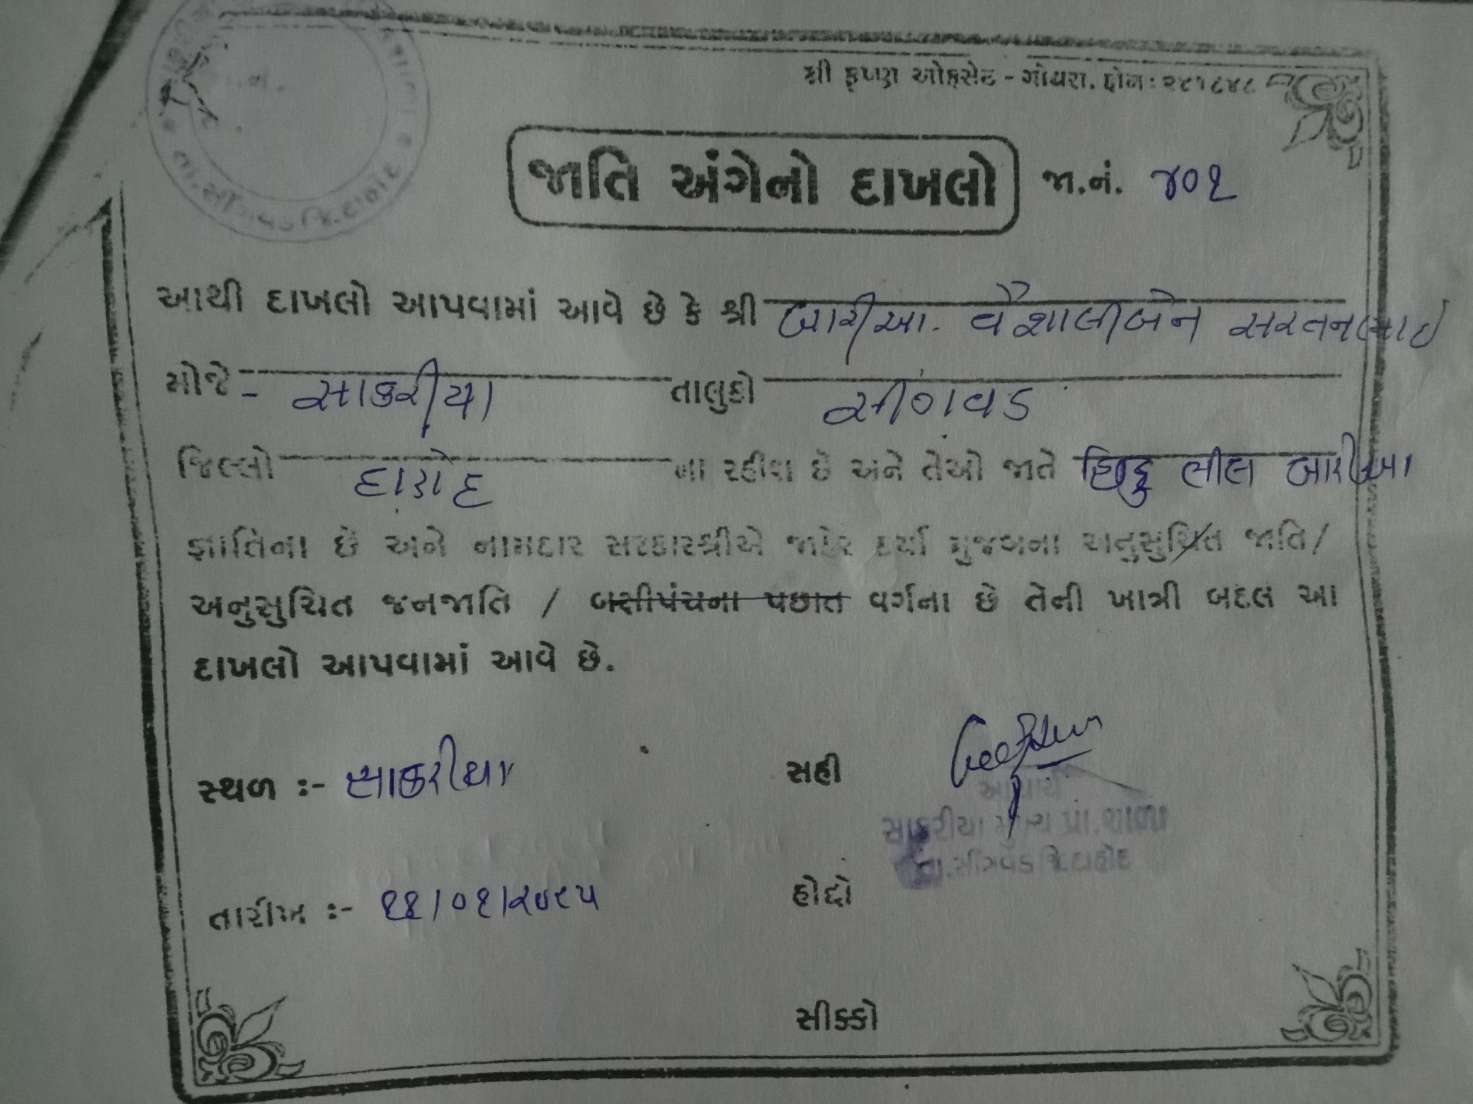 શ્રી કૃષ્ણ ઓફસેટ - ગોધરા. ફોન : ૨૪૧૮૪૮
જાતિ અંગેનો દાખલો જા.નં. ૪૦૧
આથી દાખલો આપવામાં આવે છે કે શ્રી બારીઆ. વૈશાલીબેન સરતનભાઇ
મોજે - સાકરીયા તાલુકો સીંગવડ
જિલ્લો દાહોદ ના રહીશ છે અને તેઓ જાતે હિન્દુ ભીલ બારીઆ
જ્ઞાતિના છે અને નામદાર સરકારશ્રીએ જાહેર કર્યા મુજબના અનુસુચિત જાતિ/
અનુસુચિત જનજાતિ / બક્ષીપંચના પછાત વર્ગના છે તેની ખાત્રી બદલ આ
દાખલો આપવામાં આવે છે.
સ્થળ :- સાકરીયા સહી
આચાર્ય
સાકરીયા મુખ્ય પ્રા.શાળા
તા.સીંગવડ જિ.દાહોદ
તારીખ :- ૧૪/૦૧/૨૦૨૫ હોદ્દો
સીક્કો
તા.સીંગવડ જિ.દાહોદ